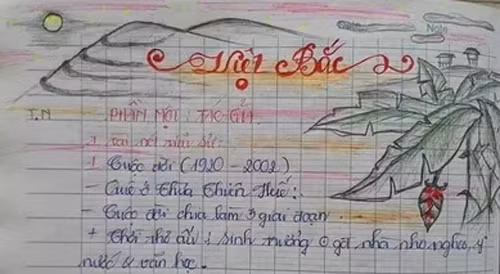 Việt Bắc
T.N PHẦN MỘT: TÁC GIẢ.
I. Vài nét tiểu sử:
1. Cuộc đời (1920 - 2002)
- Quê ở Thừa Thiên Huế:
- Cuộc đời chia làm 3 giai đoạn.
+ Thời thơ ấu: sinh trưởng gđ nhà nho nghèo, y
nước & văn học.